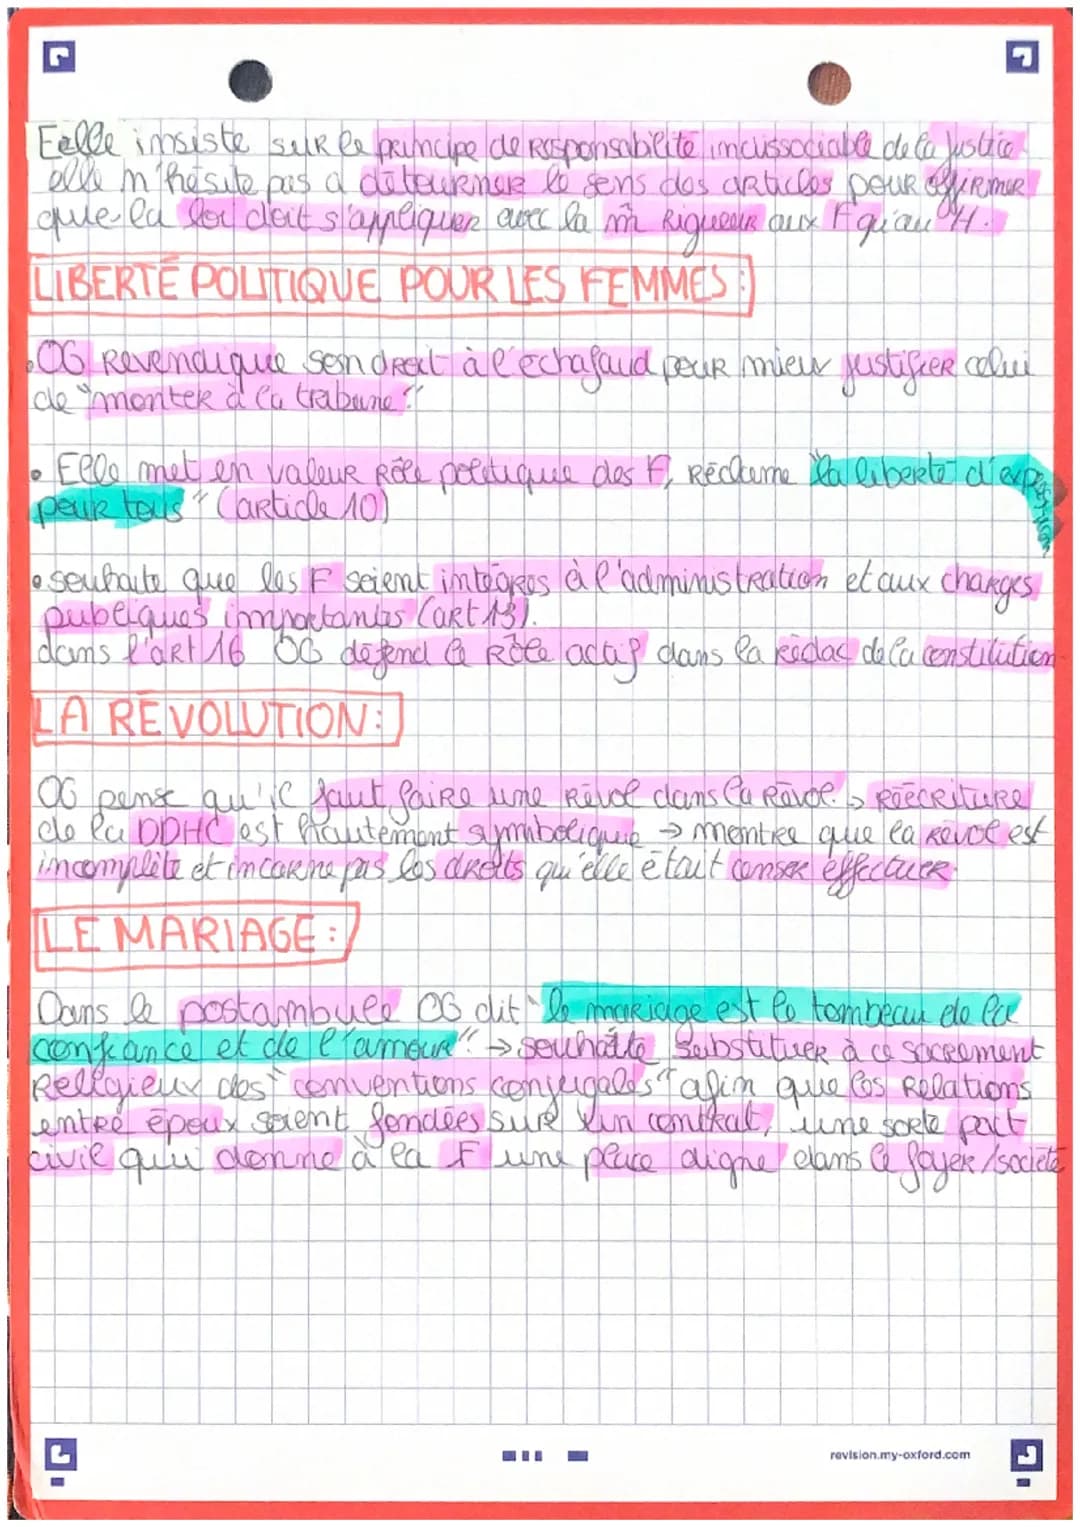 Eelle insiste sur le principe de responsabilité indissociable de la justice
elle n'hésite pas a détourner le sens des articles pour affirmer
que la loi doit s'appliquer avec la m̂ Rigueur aux F qu'au H.
LIBERTÉ POLITIQUE POUR LES FEMMES :
•OG Revendique son droit à l'echafaud pour mieux justifier celui
de "monter à la tribune".
• Elle met en valeur Rôle politique des F, Réclame "la liberté d'expression
pour tous" (article 10)
• souhaite que les F soient intégrés à l'administration et aux charges
publiques importantes (art 13).
dans l'art 16 OG défend le Rôle actif dans la rédac de la constitution
LA RÉVOLUTION:
OG pense qu'il faut faire une Révol dans la Révol. ↳ Réécriture
de la DDHC est hautement symbolique → montre que la Révol est
incomplète et incarne pas les droits qu'elle était censer effectuer.
LE MARIAGE :
Dans le postambule OG dit "le mariage est le tombeau de la
confiance et de l'amour". → souhaite substituer à ce sacrement
Religieux des "conventions conjugales" afin que les Relations
entre époux soient fondées sur un contrat, une sorte pact
civil qui donne à la F une place digne dans le foyer/société
revision.my-oxford.com